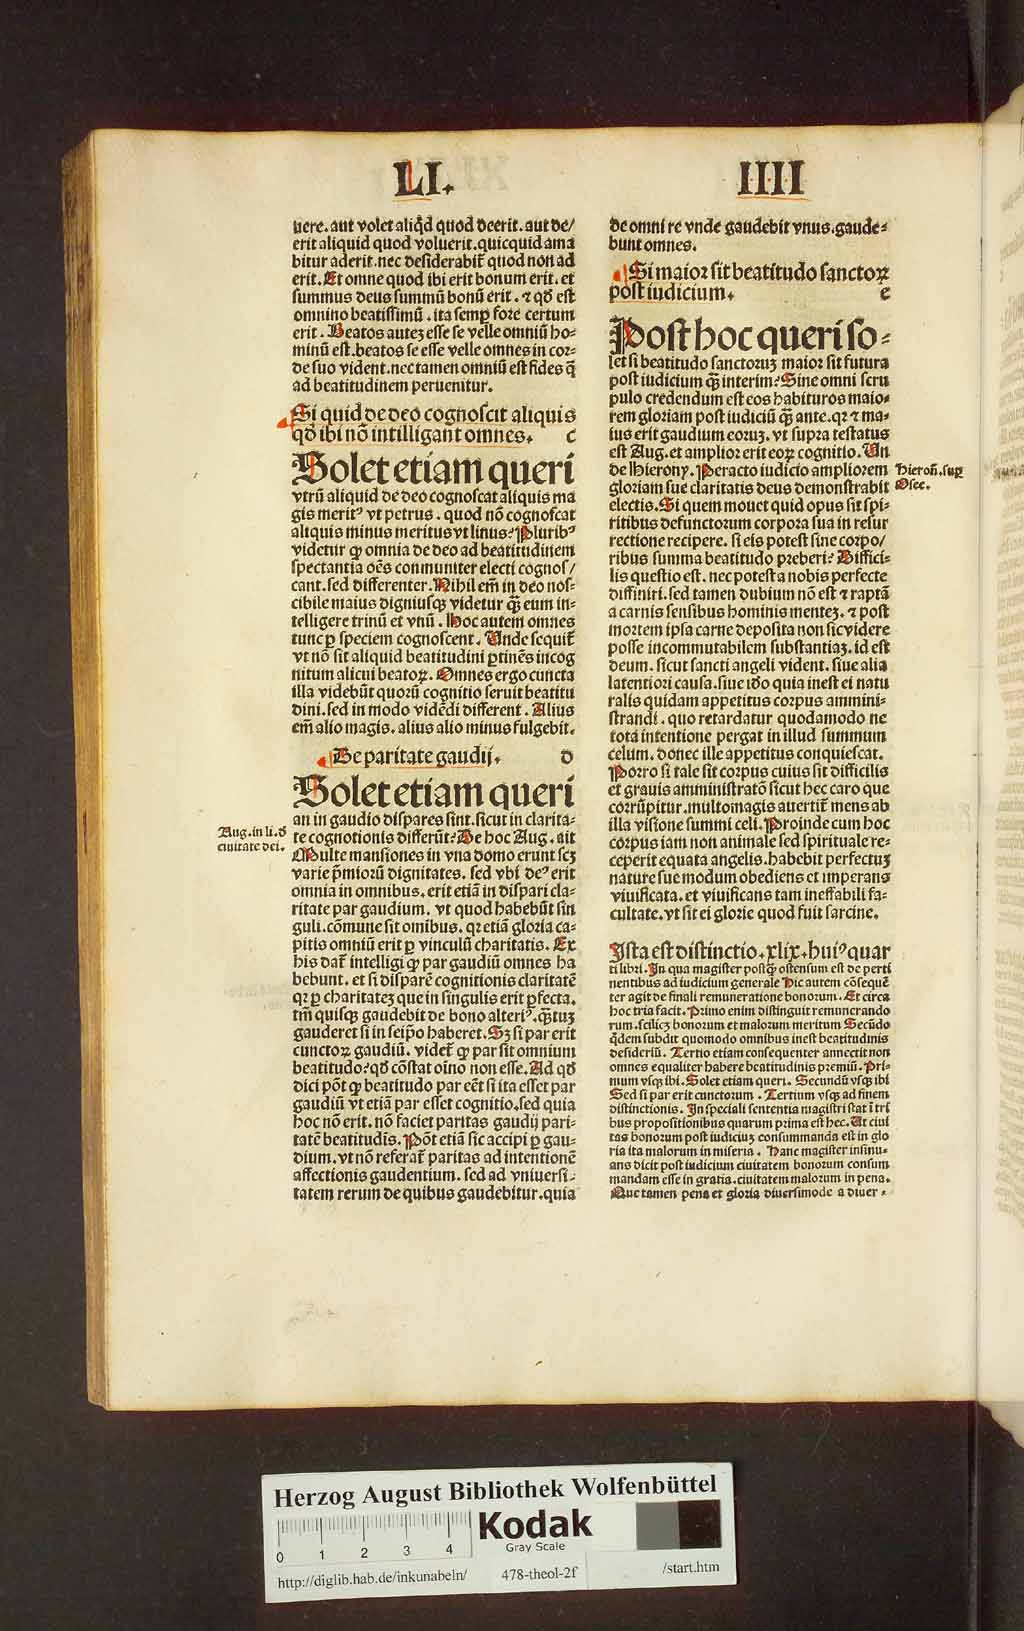 LI.
IIII
uere. aut volet aliqd̄ quod deerit. aut de/
erit aliquid quod voluerit. quicquid ama
bitur aderit. nec desiderabit̄ quod non ad
erit. Et omne quod ibi erit bonum erit. et
summus deus summū bonū erit. ⁊ qd̄ est
omnino beatissimū. ita semꝑ fore certum
erit. Beatos autez esse se velle omniū ho-
minū est. beatos se esse velle omnes in cor-
de suo vident. nec tamen omniū est fides q̄
ad beatitudinem peruenitur.
Si quid de deo cognoscit aliquis
qd̄ ibi nō intilligant omnes. c
Solet etiam queri
vtrū aliquid de deo cognoscat aliquis ma
gis meritꝰ vt petrus. quod nō cognoscat
aliquis minus meritus vt linus? Pluribꝰ
videtur ꝙ omnia de deo ad beatitudinem
spectantia oēs conmuniter electi cognos/
cant. sed differenter. Nihil em̄ in deo nos-
cibile maius digniusqꝫ videtur q̄ꝫ eum in-
telligere trinū et vnū. Hoc autem omnes
tunc ꝑ speciem cognoscent. Unde sequit̄
vt nō sit aliquid beatitudini ꝑtinēs incog
nitum alicui beatoꝝ. Omnes ergo cuncta
illa videbūt quorū cognitio seruit beatitu
dini. sed in modo vidēdi different. Alius
em̄ alio magis. alius alio minus fulgebit.
De paritate gaudij. d
Solet etiam queri
an in gaudio dispares sint. sicut in clarita-
te cognotionis differūt? De hoc Aug. ait
Multe mansiones in vna domo erunt scꝫ
varie p̄miorū dignitates. sed vbi deꝰ erit
omnia in omnibus. erit etiā in dispari cla-
ritate par gaudium. vt quod habebūt sin
guli. cōmune sit omibus. qr etiā gloria ca-
pitis omniū erit ꝑ vinculū charitatis. Ex
his dat̄ intelligi ꝙ par gaudiū omnes ha
bebunt. et si disparē cognitionis claritatē
qr ꝑ charitatez que in singulis erit ꝑfecta.
tm̄ quisqꝫ gaudebit de bono alteriꝰ. q̄tuꝫ
gauderet si in seipo haberet. Sꝫ si par erit
cunctoꝝ gaudiū. videt̄ ꝙ par sit omnium
beatitudo? qd̄ cōstat oīno non esse. Ad qd̄
dici pōt ꝙ beatitudo par eēt si ita esset par
gaudiū vt etiā par esset cognitio. sed quia
hoc nō erit. nō faciet paritas gaudij pari-
tatē beatitudīs. Pōt etiā sic accipi ꝑ gau-
dium. vt nō referat̄ paritas ad intentionē
affectionis gaudentium. sed ad vniuersi-
tatem rerum de quibus gaudebitur. quia
Aug. in li. d̄
ciuitate dei.
de omni re vnde gaudebit vnus. gaude-
bunt omnes.
Si maior sit beatitudo sanctoꝝ
post iudicium. e
Post hoc queri so-
let si beatitudo sanctoruꝫ maior sit futura
post iudicium q̄ꝫ interim? Sine omni scru
pulo credendum est eos habituros maio-
rem gloriam post iudiciū q̄ꝫ ante. qr ⁊ ma-
ius erit gaudium eoruꝫ. vt supra testatus
est Aug. et amplior erit eoꝝ cognitio. Un
de Hierony. Peracto iudicio ampliorem
gloriam sue claritatis deus demonstrabit
electis. Si quem mouet quid opus sit spi-
ritibus defunctorum corpora sua in resur
rectione recipere. si eis potest sine corpo/
ribus summa beatitudo preberi? Diffici-
lis questio est. nec potest a nobis perfecte
diffiniri. sed tamen dubium nō est ⁊ raptā
a carnis sensibus hominis menteꝫ. ⁊ post
mortem ipsa carne deposita non sic videre
posse incommutabilem substantiaꝫ. id est
deum. sicut sancti angeli vident. siue alia
latentiori causa. siue ido quia inest ei natu
ralis quidam appetitus corpus ammini-
strandi. quo retardatur quodamodo ne
tota intentione pergat in illud summum
celum. donec ille appetitus conquiescat.
Porro si tale sit corpus cuius sit difficilis
et grauis amministratō sicut hec caro que
corrūpitur. multomagis auertit̄ mens ab
illa visione summi celi. Proinde cum hoc
corpus iam non animale sed spirituale re-
ceperit equata angelis. habebit perfectuꝫ
nature sue modum obediens et imperans
viuificata. et viuificans tam ineffabili fa-
cultate. vt sit ei glorie quod fuit sarcine.
Hieroñ. suꝑ
Osee.
Ista est distinctio. xlix. huiꝰ quar
ti libri. In qua magister postq̄ꝫ ostensum est de perti
nentibus ad iudicium generale Hic autem cōsequē
ter agit de finali remuneratione bonorum. Et circa
hoc tria facit. Primo enim distinguit remunerando
rum. scilicꝫ bonorum et malorum meritum Secūdo
q̄dem subdit quomodo omnibus inest beatitudinis
desideriū. Tertio etiam consequenter annectit non
omnes equaliter habere beatitudinis premiū. Pri-
mum vsqꝫ ibi. Solet etiam queri. Secundū vsqꝫ ibi
Sed si par erit cunctorum. Tertium vsqꝫ ad finem
distinctionis. In speciali sententia magistri stat ī tri
bus propositionibus quarum prima est hec. Ut ciui
tas bonorum post iudiciuꝫ consummanda est in glo
ria ita malorum in miseria. Hanc magister insinu-
ans dicit post iudicium ciuitatem bonorum consum
mandam esse in gratia. ciuitatem malorum in pena.
Que tamen pena et gloria diuersimode a diuer-
Herzog August Bibliothek Wolfenbüttel
Kodak
Gray Scale
0 1 2 3 4
http://diglib.hab.de/inkunabeln/ 478-theol-2f /start.htm